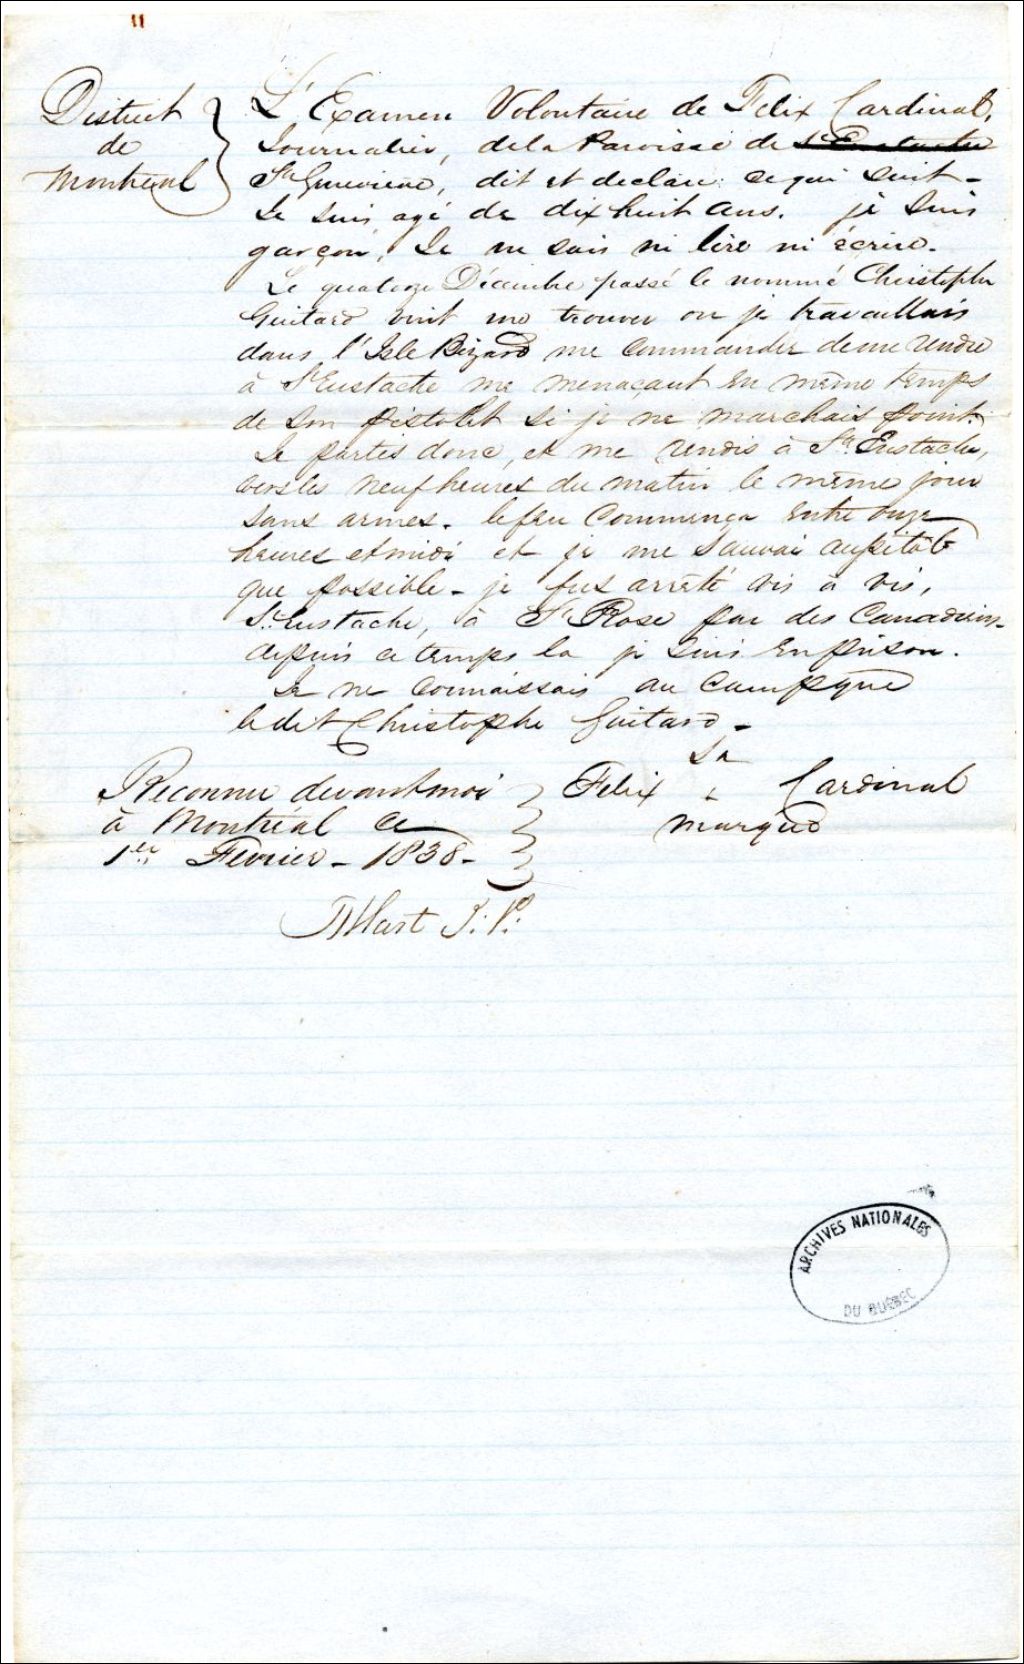 11
District
de
Montréal
L'Examen Volontaire de Felix Cardinal,
Journalier, de la Paroisse de St Eustache
Ste Genevieve, dit et declare ce qui suit -
Je suis agé de dix huit ans. je suis
garçon, Je ne sais ni lire ni écrire.
Le quatorze Décembre passé le nommé Christophe
Guitard vint me trouver ou je travaillais
dans l'Isle Bizard me Commander de me rendre
à St Eustache me menaçant en même temps
de son pistolet si je ne marchais point.
Je partis donc, et me rendis à St. Eustache,
vers les neuf heures du matin le même jour
sans armes. le feu Commença entre onze
heures et midi et je me sauvai aussitôt
que possible - je fus arrêté vis à vis,
St. Eustache, à Ste Rose par des Canadiens.
depuis ce temps la je suis en prison.
Je ne Connaissais au Campque
le dit Christophe Guitard -
Reconnu devant moi
à Montréal ce
1er Fevrier - 1838 -
sa
Felix + Cardinal
marque
Hart J: P:
ARCHIVES NATIONALES
DU QUÉBEC